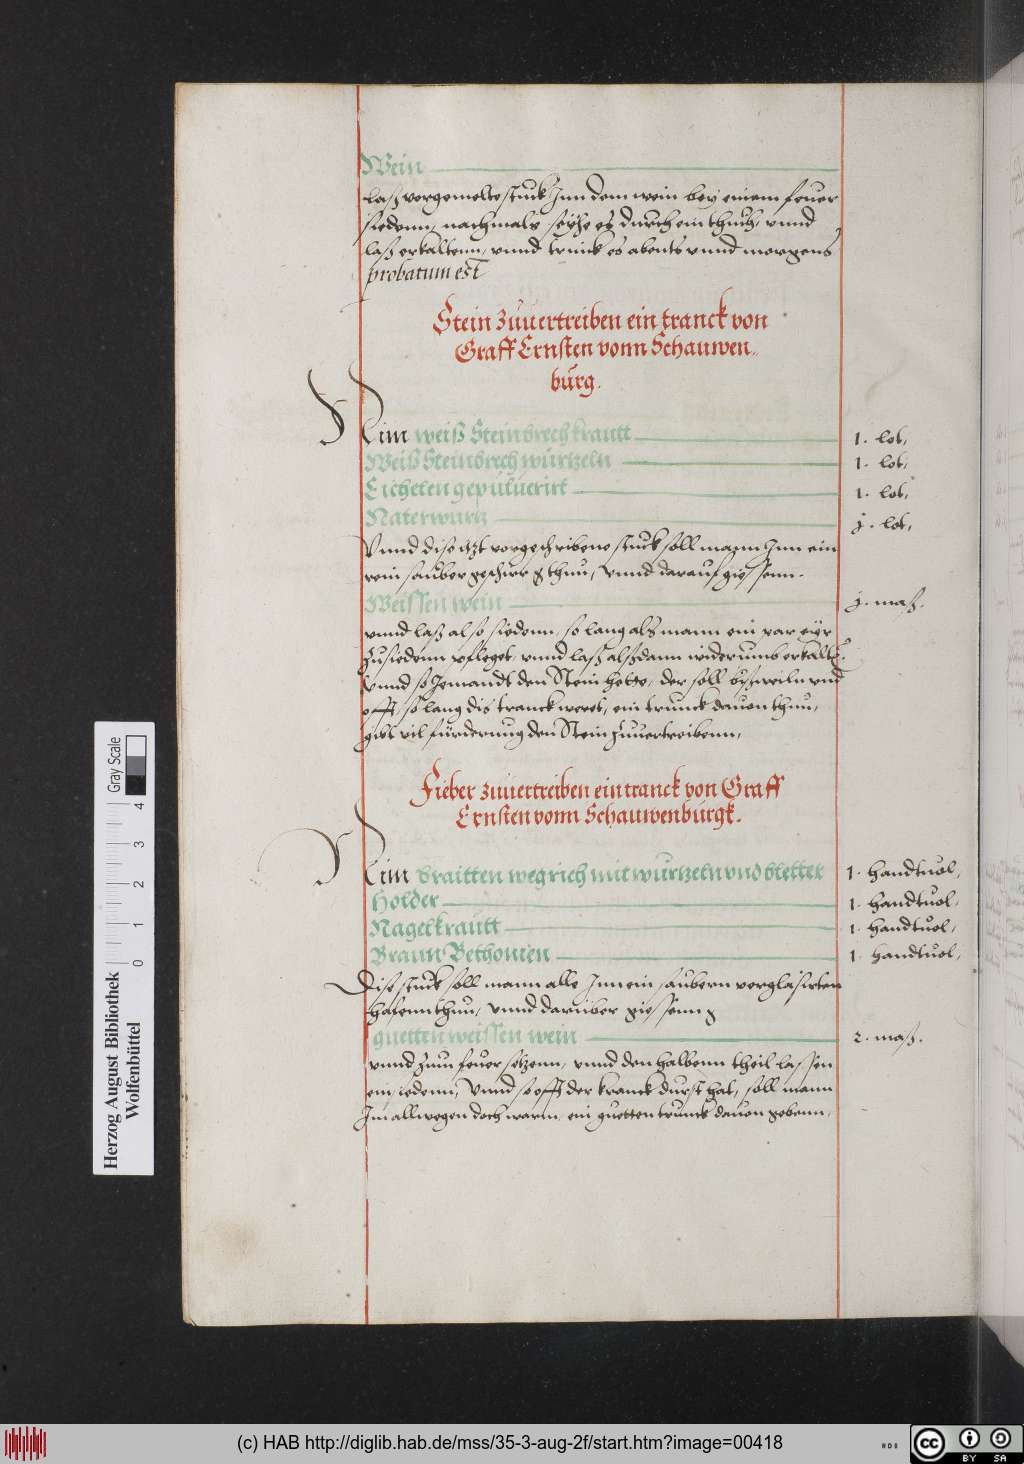 Wein
laß vorgemelte stuck Inn dem wein bey einem feuer
siedenn, nachmals seyhe es durch ein thuch, vnnd
laß erkaltenn, vnnd trinck es abents vnnd morgens
probatum est
Stein zuuertreiben ein tranck von
Graff Ernsten vonn Schauwen„
burg.
Nim weiß Steinbrech krautt 1. lot,
Weiß Steinbrech wurtzeln 1. lot,
Eichelen gepuluerirt 1. lot,
Naterwurtz j. lot,
Vnnd dise itzt vorgeschribene stuck soll mann Inn ein
rein sauber geschirr thun, Vnnd darauf giessenn.
Weissen wein j. maß.
vnnd laß also siedenn, so lang als mann ein par eyer
zusiedenn pfleget, vnnd laß alßdann widerumb erkaltē.
Vnnd so Jemandt den Stein hette, der soll bißweiln vnd
offt so lang dis tranck weret, ein trunck dauon thun,
gibt vil fürderung den Stein zuuertreibenn,
Fieber zuuertreiben ein tranck von Graff
Ernsten vonn Schauwenburgk.
Nim braitten wegrich mit wurtzeln vnd bletter 1. handtuol,
Holder 1. handtuol,
Nagelkrautt 1. handtuol,
Braun Bethonien 1. handtuol,
Dise stuck soll mann alle Inn ein saubern verglasirten
hafenn thun, Vnnd darüber giessenn
guetten weissen wein 2. maß.
vnnd zum feuer setzenn, vnnd den halbenn theil lassen
ein siedenn, Vnnd so offt der kranck durst hat, soll mann
Im allwegen doch warm, ein guetten trunck dauon gebenn,
Gray Scale
0 1 2 3 4
Herzog August Bibliothek
Wolfenbüttel
(c) HAB http://diglib.hab.de/mss/35-3-aug-2f/start.htm?image=00418
cc BY SA